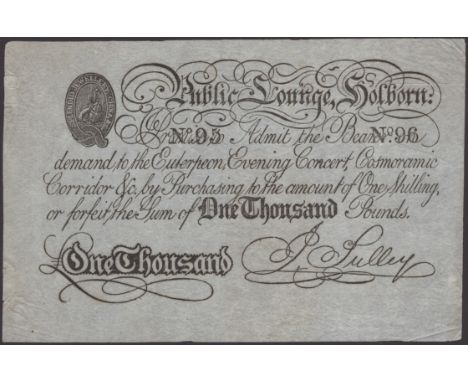 Public Lounge, Holborn:
I Promise to Admit the Bearer on
No. 95 No. 96
demand to the Euterpeon, Evening Concert, Cosmoramic
Corridor &c, by Purchasing to the amount of One Shilling,
or forfeit the Sum of One Thousand Pounds.
One Thousand J. Sulley